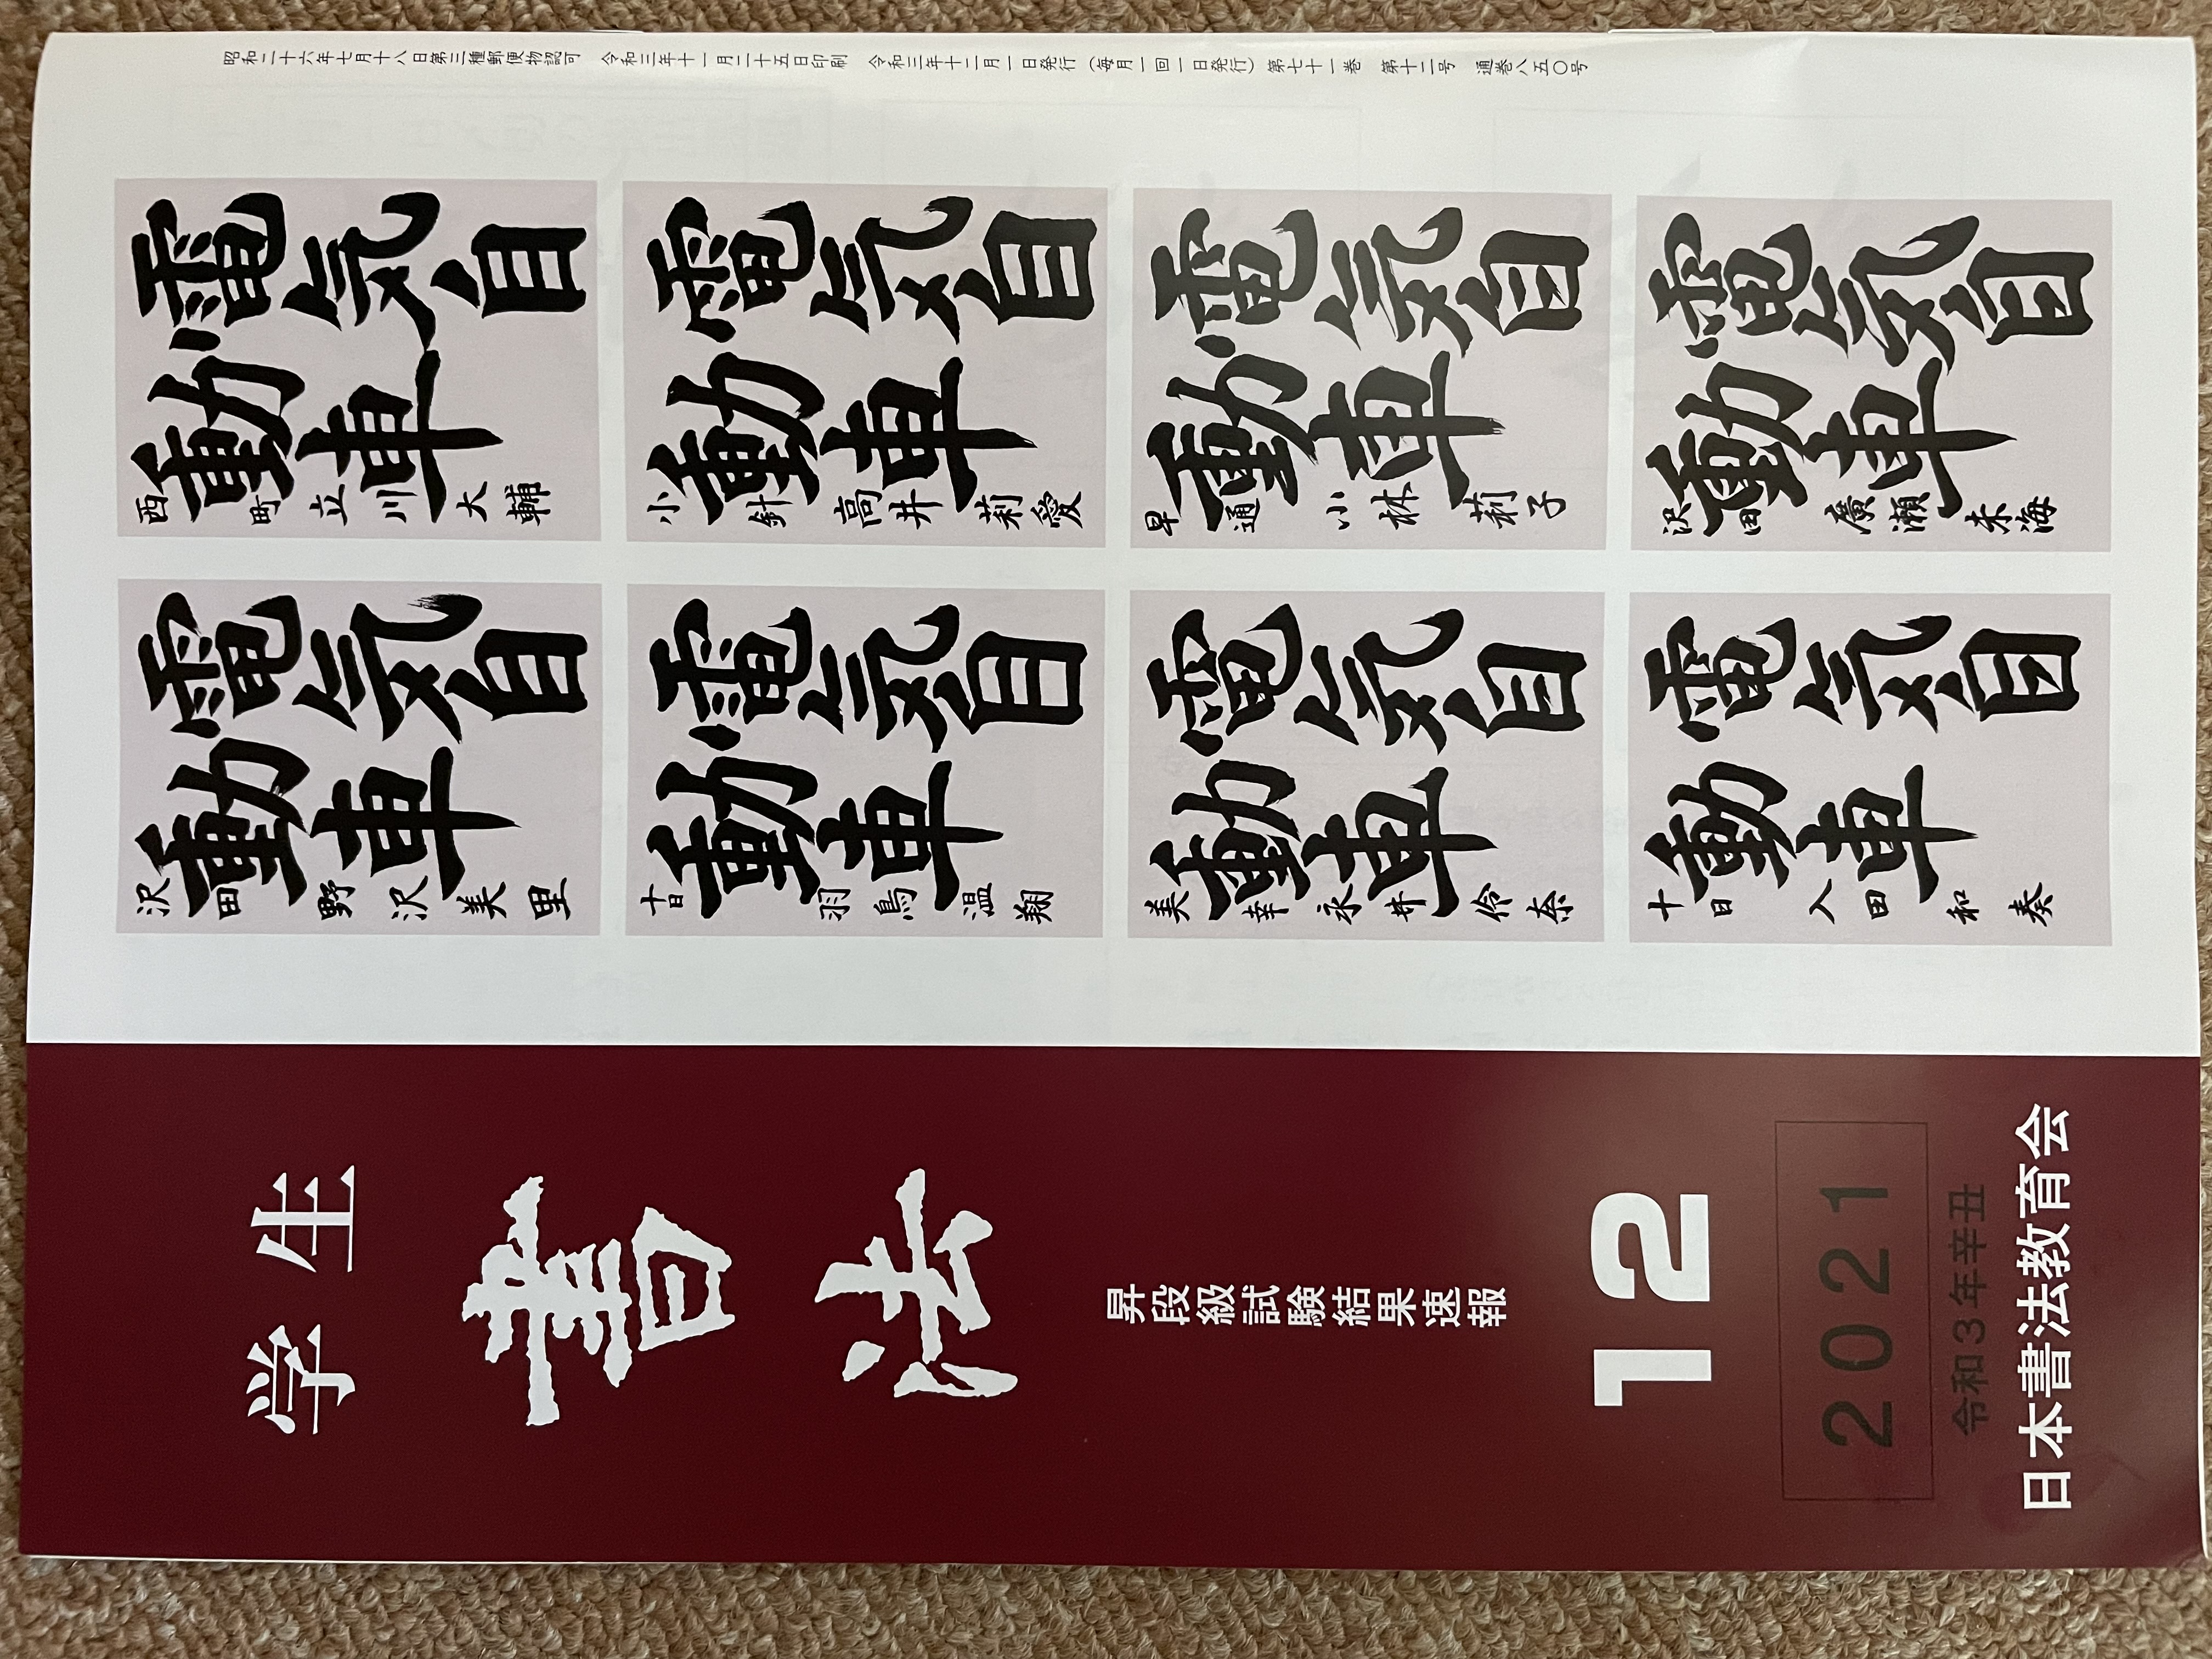 学生
書法
昇段級試験結果速報
12
2021
令和3年辛丑
日本書法教育会
昭和二十六年七月十八日第三種郵便物認可 令和三年十一月二十五日印刷 令和三年十二月一日発行（毎月一回一日発行）第七十一巻 第十二号 通巻八五〇号
電気自
動車
西町 立川大輔
電気自
動車
沢田 野沢美里
電気自
動車
小針 高井莉愛
電気自
動車
十日 羽鳥温翔
電気自
動車
早通 小林莉子
電気自
動車
美幸 永井伶奈
電気自
動車
沢田 廣瀬朱海
電気自
動車
十日 入田和奏